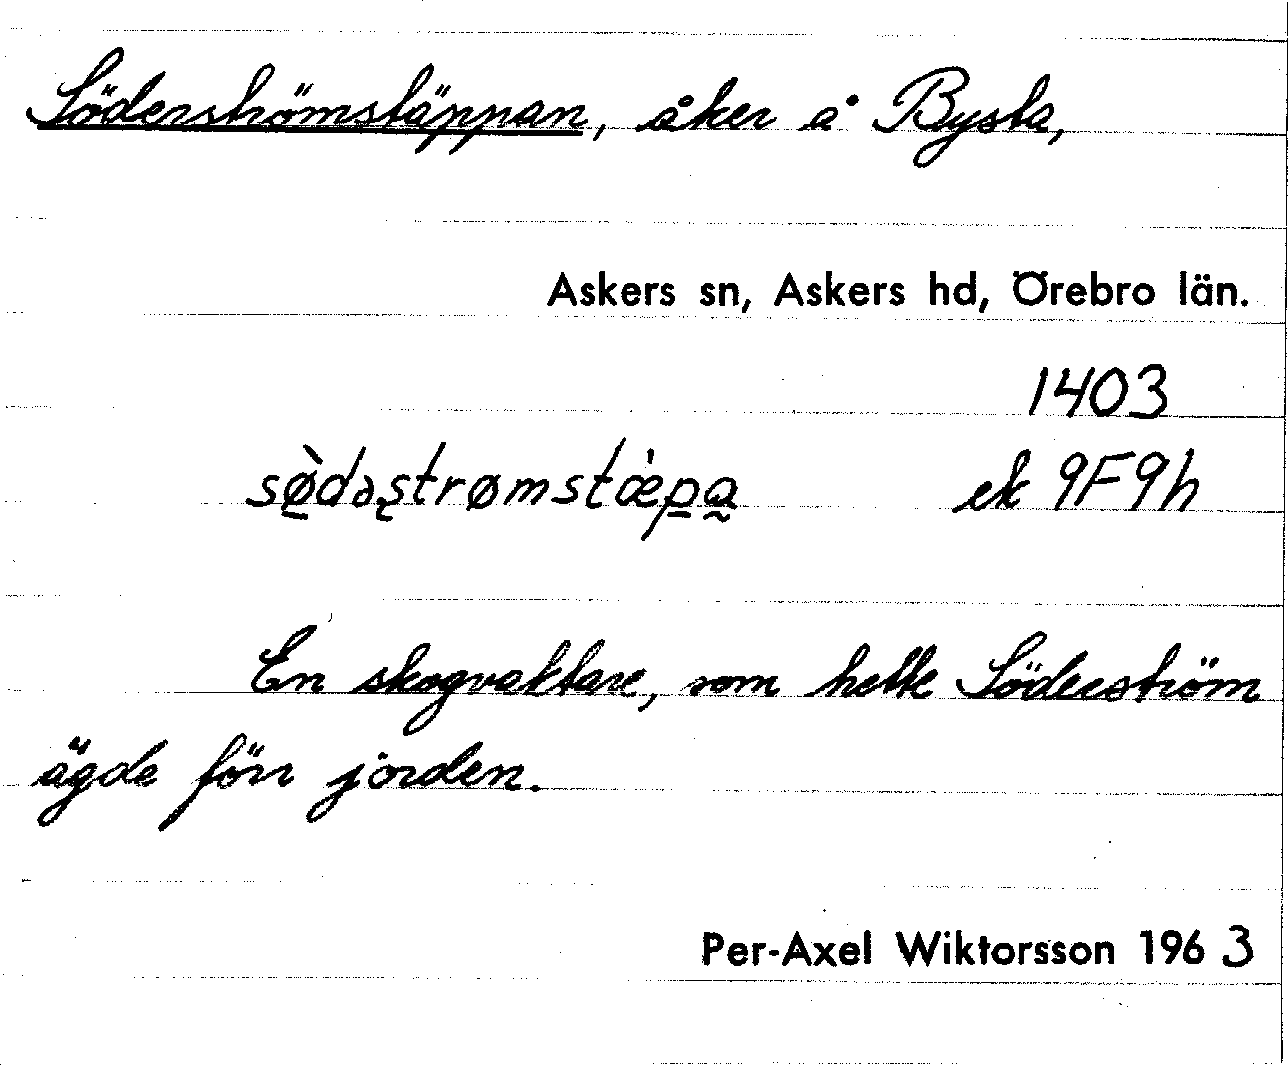 Söderströmstäppan, åker å Bysta,
Askers sn, Askers hd, Örebro län.
1403
sø̠̀dəʂtrømstæ̀p̠a̰ ek 9F9h
En skogvaktare, som hette Söderström
ägde förr jorden.
Per-Axel Wiktorsson 1963